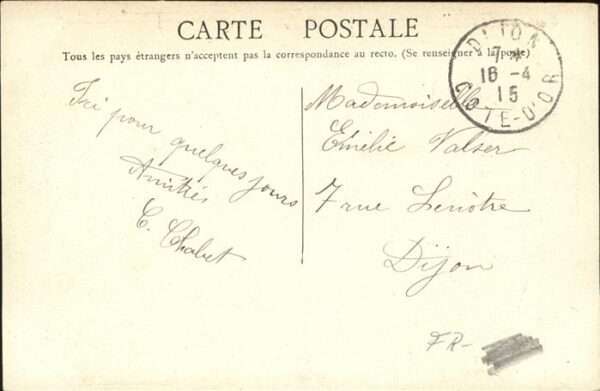 CARTE POSTALE
Tous les pays étrangers n'acceptent pas la correspondance au recto. (Se renseigner à la poste)
DIJON
7 *
16 -4
15
COTE-D'OR
Ici pour quelques jours
Amitiés
C. Chabet
Mademoiselle
Emélie Valser
7 rue Lenôtre
Dijon
FR-